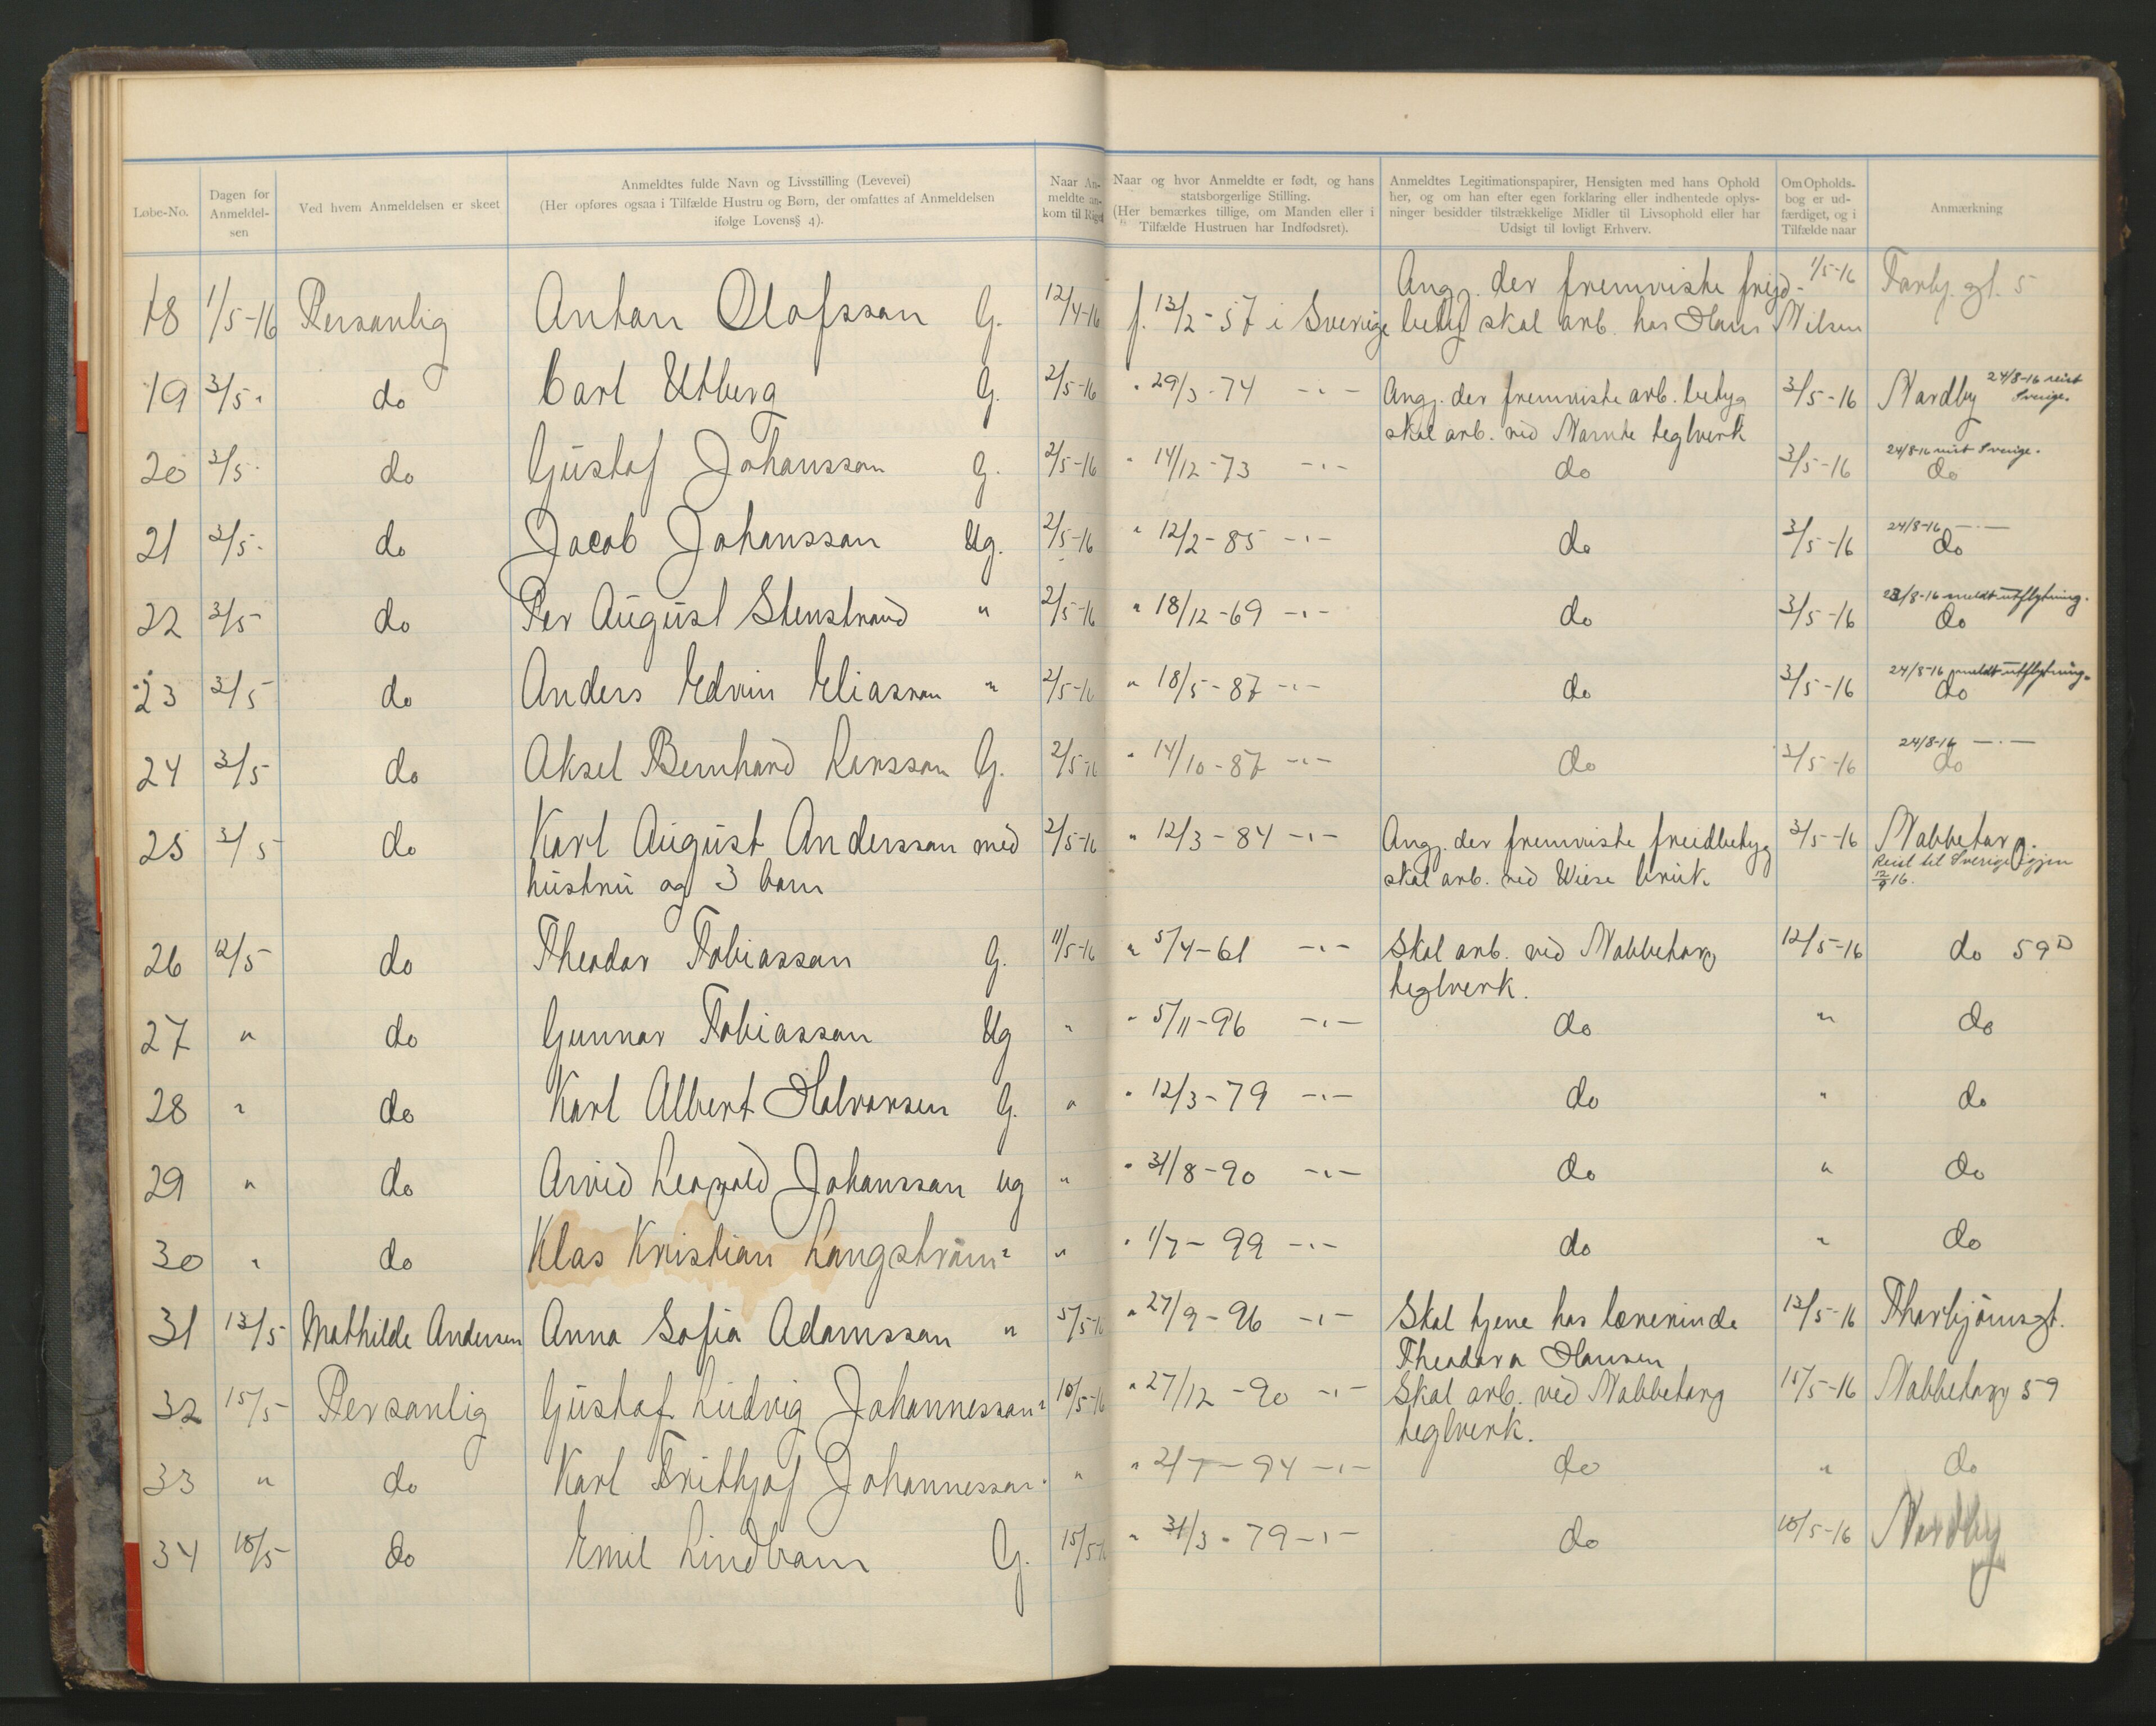 Løbe-No. | Dagen for Anmeldel-sen | Ved hvem Anmeldelsen er skeet | Anmeldtes fulde Navn og Livsstilling (Levevei) (Her opføres ogsaa i Tilfælde Hustru og Børn, der omfattes af Anmeldelsen ifølge Lovens § 4). | Naar An-meldte an-kom til Riget | Naar og hvor Anmeldte er født, og hans statsborgerlige Stilling. (Her bemærkes tillige, om Manden eller i Tilfælde Hustruen har Indfødsret). | Anmeldtes Legitimationspapirer, Hensigten med hans Ophold her, og om han efter egen forklaring eller indhentede oplys-ninger besidder tilstrækkelige Midler til Livsophold eller har Udsigt til lovligt Erhverv. | Om Opholds-bog er ud-færdiget, og i Tilfælde naar | Anmærkning
18 | 1/5-16 | Personlig | Anton Olofsson G. | 12/4-16 | f. 13/2-57 i Sverige | Ang. der fremviste frejd-betyg skal arb. hos Hans Nilsen | 1/5-16 | Torbj. gt. 5
19 | 3/5 " | do | Carl Utberg G. | 2/5-16 | " 29/3-74 -"- | Ang. der fremviste arb. betyg skal arb. ved Narnte teglverk | 3/5-16 | Nordby 24/8-16 reist Sverige.
20 | 3/5 " | do | Gustaf Johansson G. | 2/5-16 | " 14/12-73 -"- | do | 3/5-16 | 24/8-16 reist Sverige. do
21 | 3/5 " | do | Jacob Johansson Ug. | 2/5-16 | " 12/2-85 -"- | do | 3/5-16 | 24/8-16 -"- do
22 | 3/5 | do | Per August Stenstrand " | 2/5-16 | " 18/12-69 -"- | do | 3/5-16 | 23/8-16 meldt utflytning. do
23 | 3/5 | do | Anders Edvin Eliasson " | 2/5-16 | " 18/5-87 -"- | do | 3/5-16 | 24/8-16 meldt utflytning. do
24 | 3/5 | do | Aksel Bernhard Larsson G. | 2/5-16 | " 14/10-87 -"- | do | 3/5-16 | 24/8-16 -"- do
25 | 3/5 | do | Karl August Andersson med hustru og 3 barn | 2/5-16 | " 12/3-84 -"- | Ang. der fremviste freidbetyg skal arb. ved Wiese bruk. | 3/5-16 | Nabbetorp. Reist til Sverige igjen 12/9 16.
26 | 12/5 | do | Theodor Tobiasson G. | 11/5-16 | " 5/4-61 -"- | Skal arb. ved Nabbetorp teglverk. | 12/5-16 | do 59 D
27 | " | do | Gunnar Tobiasson Ug | " | " 5/11-96 -"- | do | " | do
28 | " | do | Karl Albert Halvorsen G. | " | " 12/3-79 -"- | do | " | do
29 | " | do | Arvid Leopold Johansson ug | " | " 31/8-90 -"- | do | " | do
30 | " | do | Klas Kristian Langström " | " | " 1/7-99 -"- | do | " | do
31 | 13/5 | Mathilde Andersen | Anna Sofia Adamsson " | 5/5-16 | " 27/9-96 -"- | Skal tjene hos lærerinde Theodora Hansen | 13/5-16 | Thorbjörnsgt.
32 | 15/5 | Personlig | Gustaf Ludvig Johannesson " | 10/5-16 | " 27/12-90 -"- | Skal arb. ved Nabbetorp teglverk. | 15/5-16 | Nabbetorp 59
33 | " | do | Karl Frithjof Johannesson " | " | " 2/7-94 -"- | do | " | do
34 | 18/5 | do | Emil Lindbom G. | 15/5-16 | " 31/3-79 -"- | do | 18/5-16 | Nordby